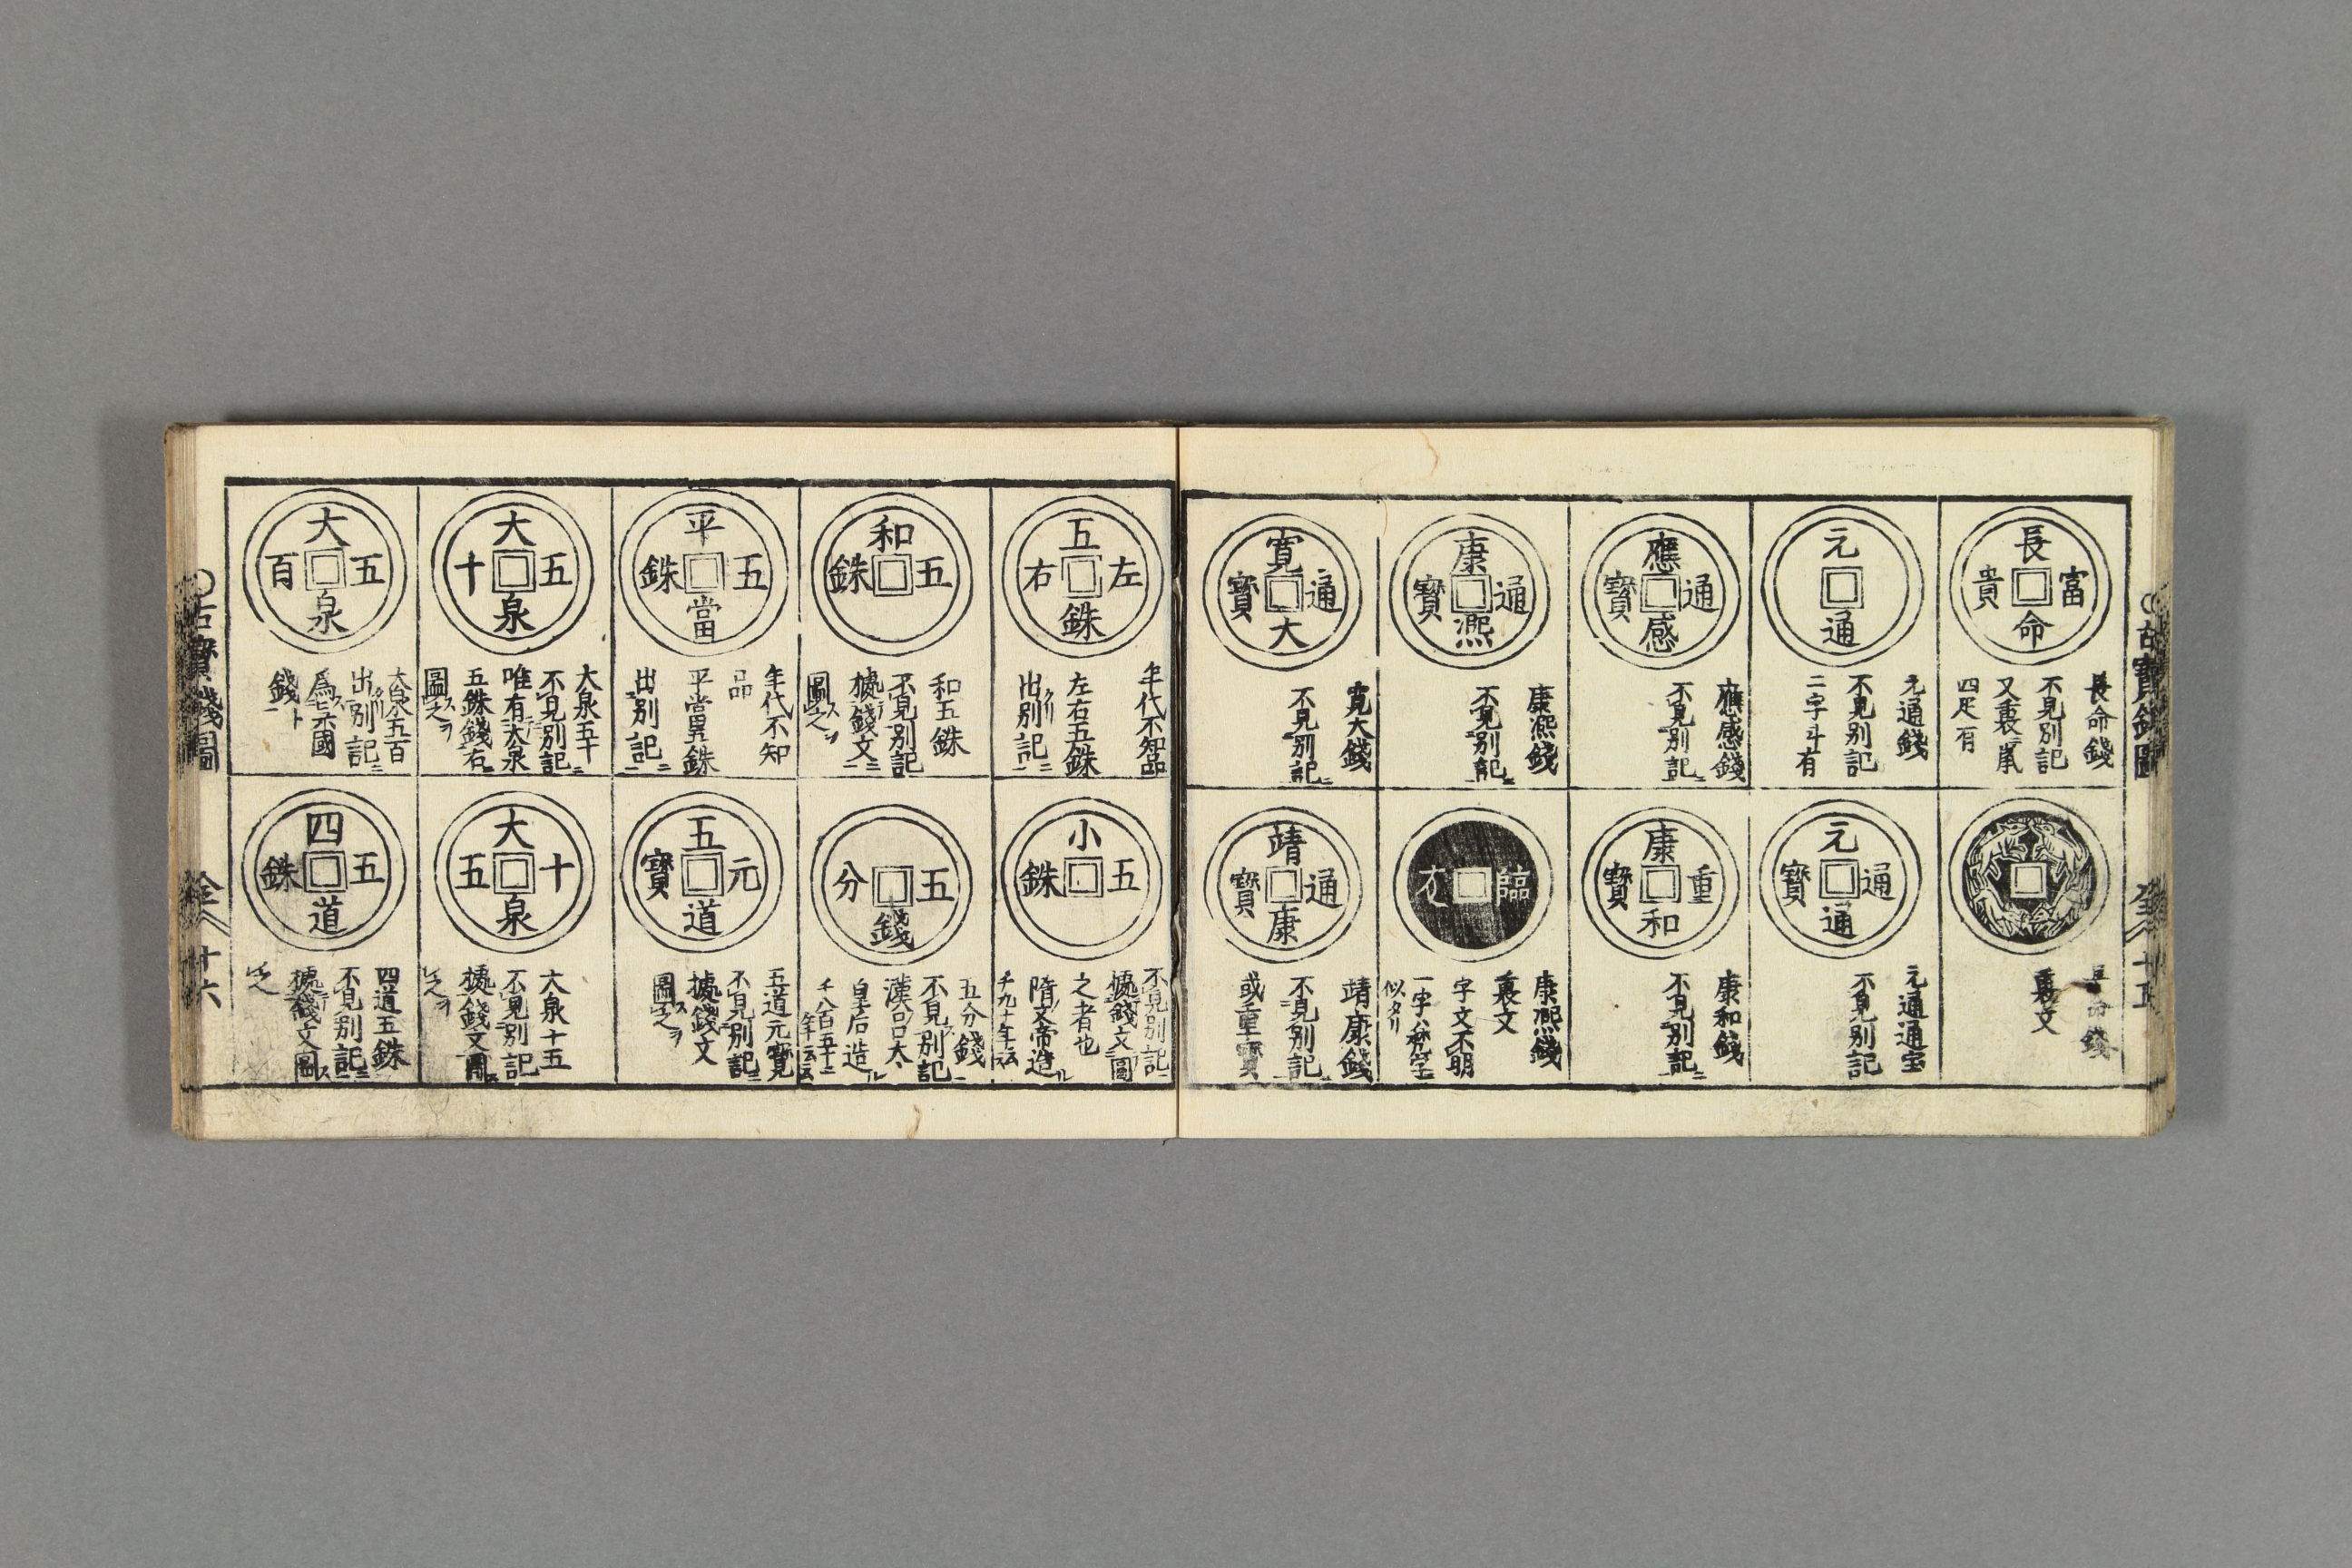 古寶錢圖
長命富貴
長命錢
不見別記
又裏ニ鼠
四疋有
元通
元通錢
不見別記
二字斗有
應感通寶
應感錢
不見別記ニ
康熙通寶
康熙錢
不見別記ニ
寛大通寶
寛大錢
不見別記ニ
長命錢
裏文
元通通寶
元通通宝
不見別記
康和重寶
康和錢
不見別記ニ
臨
康熙錢
裏文
字文不明
似タリ
靖康通寶
靖康錢
不見別記ニ
或重寶
五銖左右
年代不知品
左右五銖
出別記ニ
和五銖
和五銖
不見別記
據錢文ニ
圖ス之ヲ
平當五銖
年代不知
品
平當五銖
出別記ニ
大泉五十
大泉五十
不見別記ニ
唯有大泉
五銖錢右
圖ス之ヲ
大泉五百
大泉五百
出別記ニ
爲六國
錢ト
小五銖
不見別記ニ
據錢文圖
之者也
隋文帝造ル
千九十年云云
五分錢
五分錢
不見別記
漢ノ呂太
皇后造ル
千八百五十二
年云云
五道元寶
五道元寶
不見別記ニ
據錢文
圖ス之ヲ
大泉十五
大泉十五
不見別記
據錢文圖
之ヲ
四道五銖
四道五銖
不見別記ニ
據錢文圖ス
之
古寶錢圖
廿六